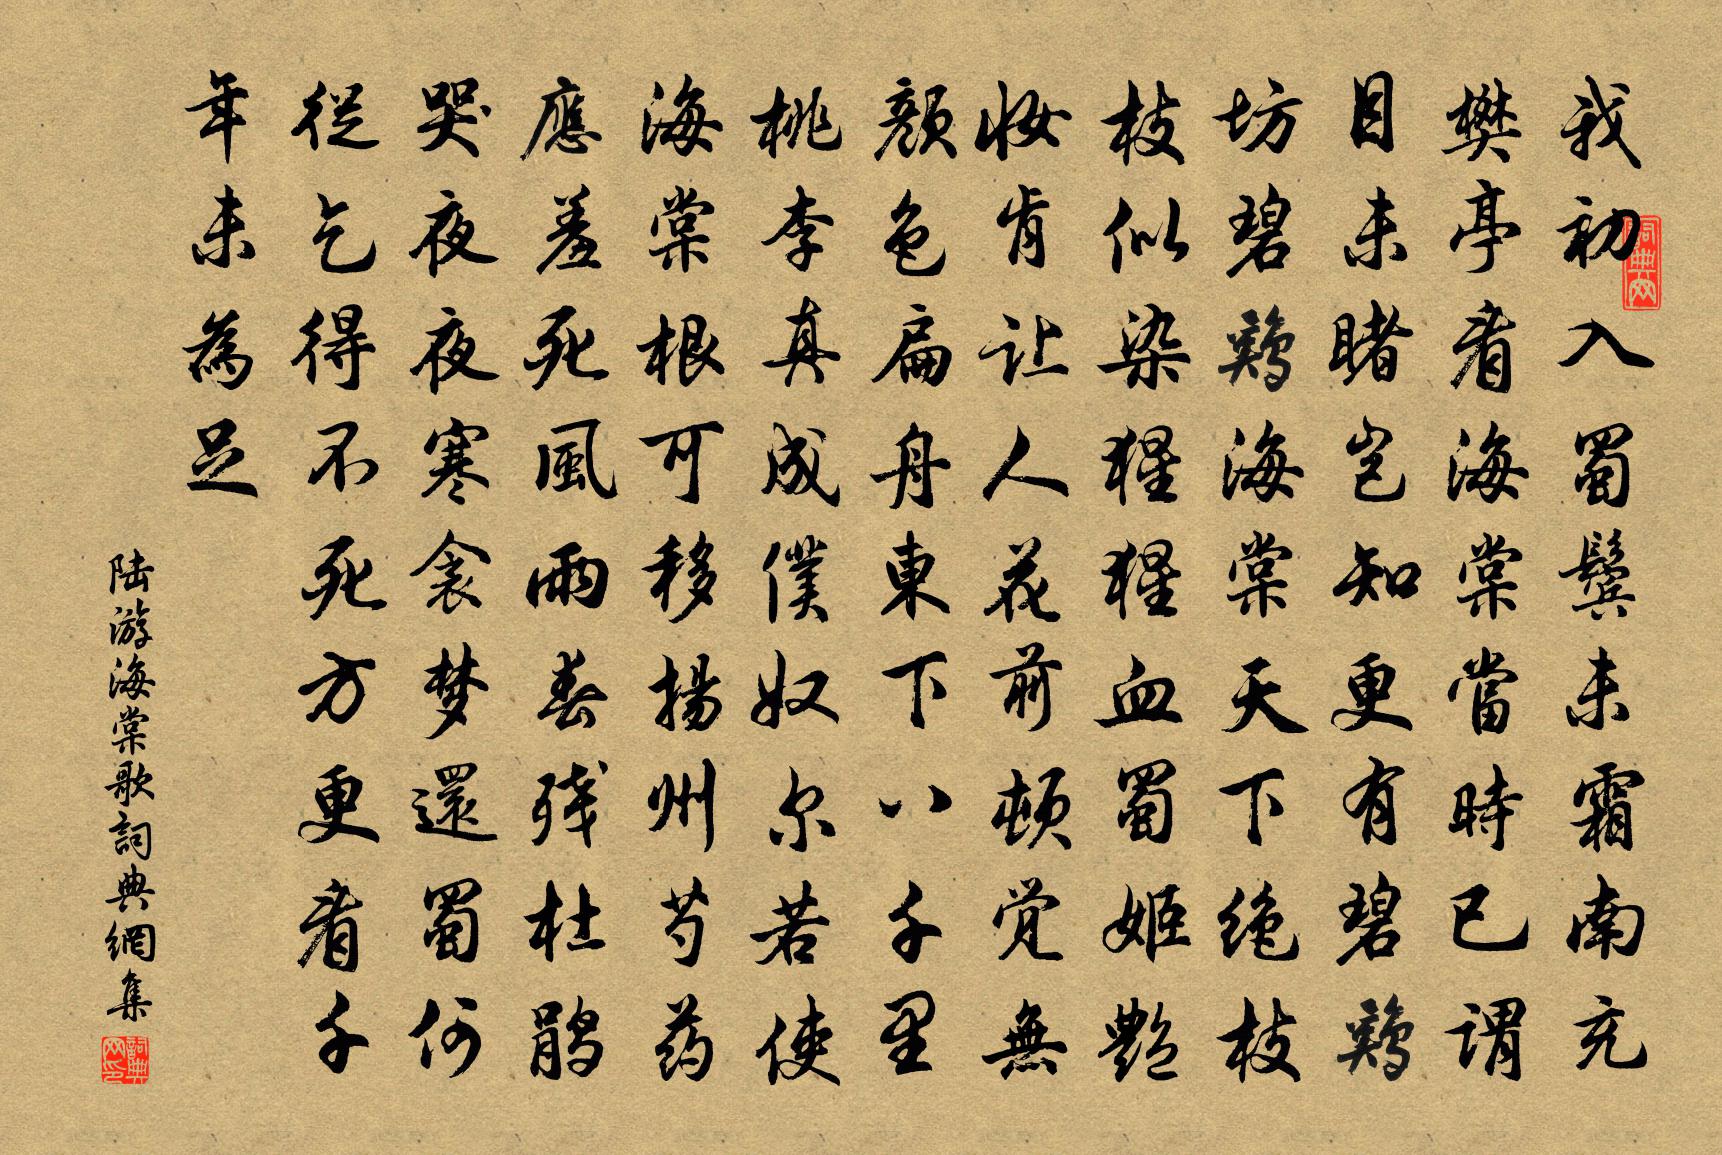 我初入蜀鬓未霜南充
樊亭看海棠當時已謂
目未睹豈知更有碧鷄
坊碧鷄海棠天下绝枝
枝似染猩猩血蜀姬艷
妝肯让人花前頓觉無
颜色扁舟東下八千里
桃李真成僕奴尔若使
海棠根可移揚州芍药
應羞死風雨春残杜鹃
哭夜夜寒衾梦還蜀何
從乞得不死方更看千
年未為足
陆游海棠歌詞典網集
詞典网
詞典网印